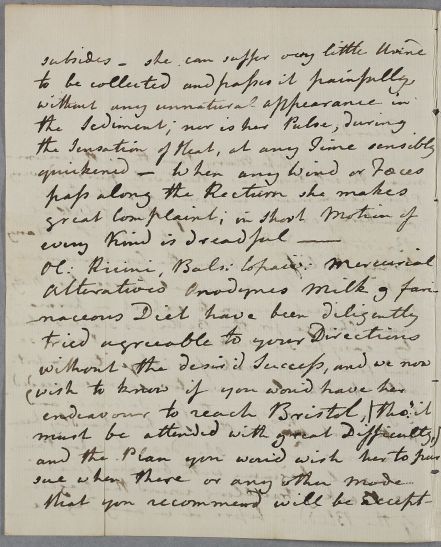 subsides – she can suffer very little Urine
to be collected and passes it painfully,
without any unnatural appearance in
the Sediment; nor is her Pulse, during
the Sensation of Heat, at any Time sensibly
quickened – When any Wind or Fæces
pass along the Rectum she makes
great Complaint; in short Motion of
every Kind is dreadful —
Ol: Ricini, Bals: Copaiv: Mercurial
Alteratives Anodynes Milk & fari-
naceous Diet have been diligently
tried agreeable to your Directions
without the desir'd Success, and we now
wish to know if you wou'd have her
endeavour to reach Bristol, (tho' it
must be attended with great Difficulty,)
and the Plan you wou'd wish her to pur
sue when there or any other mode
that you recommend will be accept-